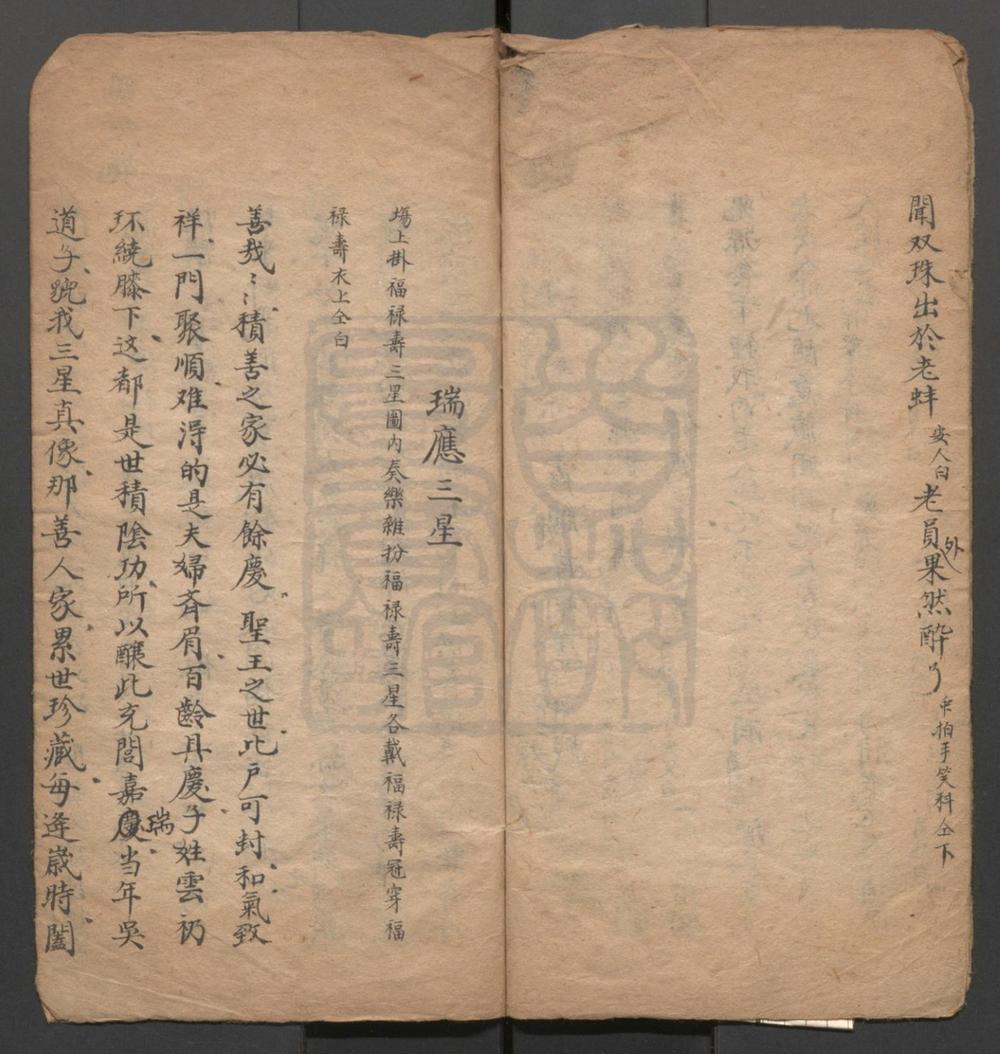 聞双珠出於老蚌 安人白 老員外果然醉了 中拍手笑科仝下
瑞應三星
塲上掛福禄壽三星圖内奏樂雜扮福禄壽三星各戴福禄壽冠穿福
禄壽衣上仝白
善哉〻〻積善之家必有餘慶聖王之世比户可封和氣致
祥一門聚順难淂的是夫婦斉眉百齡具慶子姓雲礽
环繞膝下这都是世積陰功所以釀此充閭嘉瑞当年吳
道子𠒎我三星真像那善人家累世珍藏每逢歲時闔